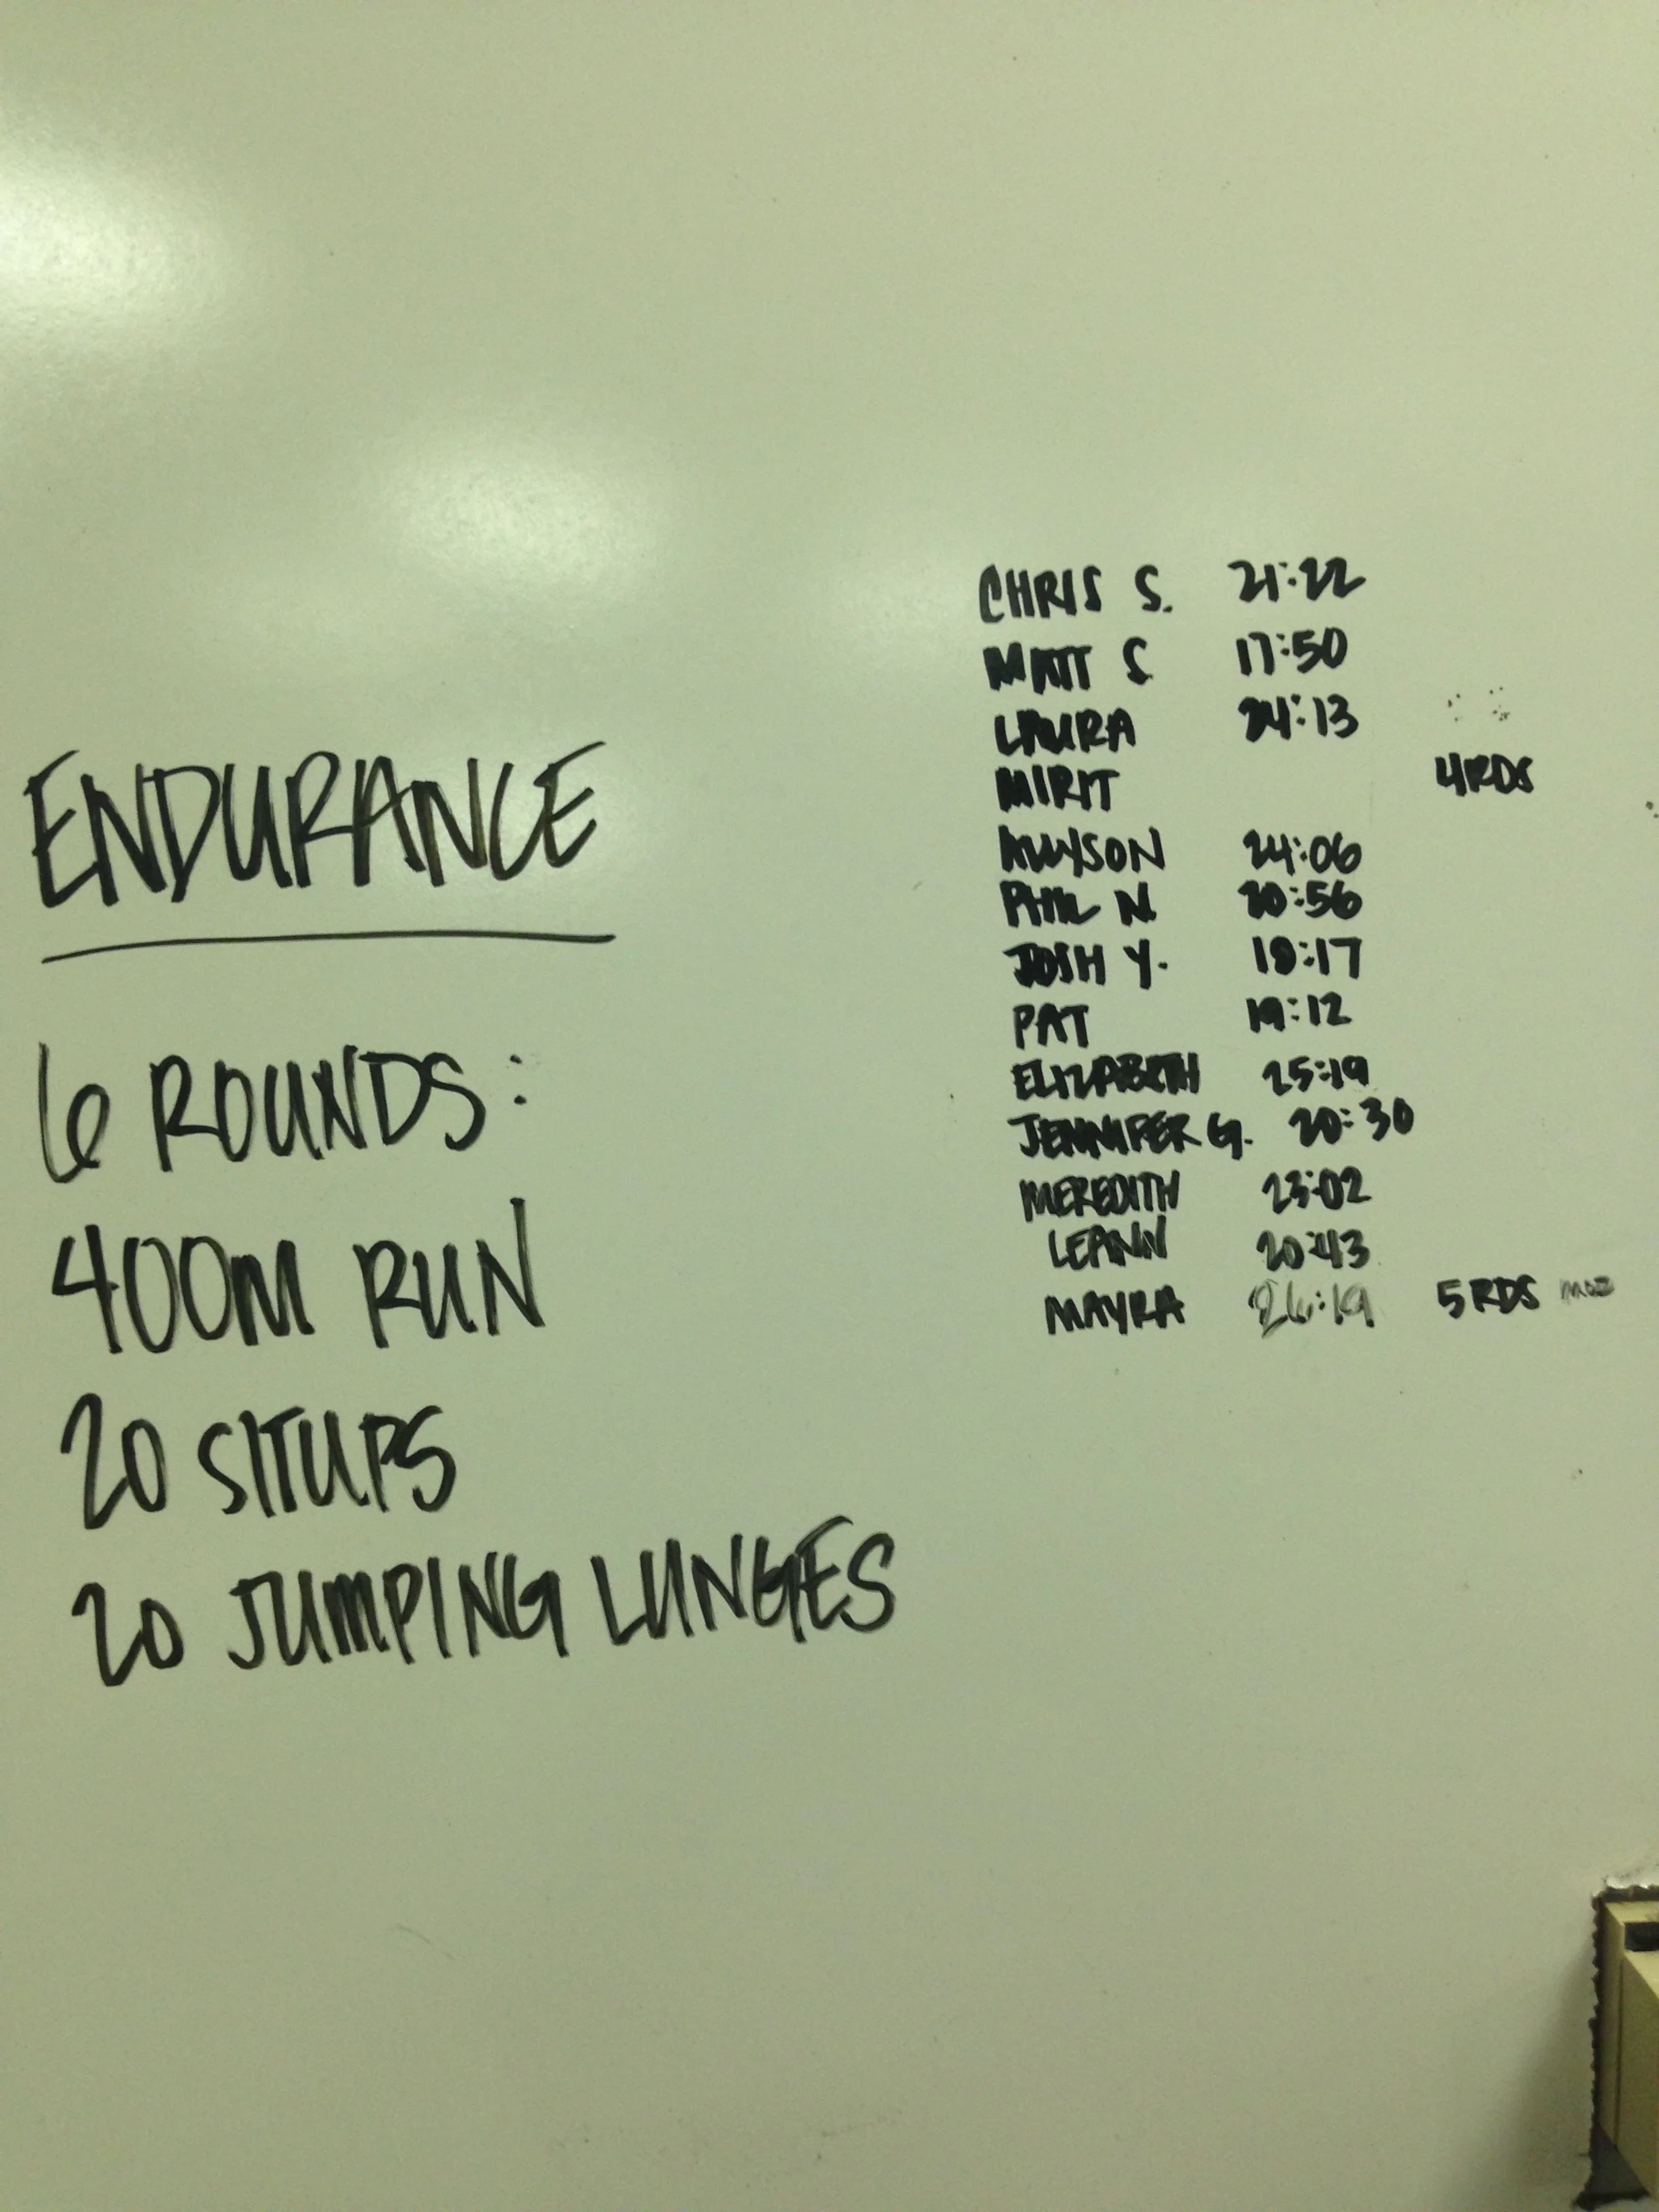 ENDURANCE
6 ROUNDS:
400M RUN
20 SITUPS
20 JUMPING LUNGES
CHRIS S. 21:22
MATT S 17:50
LAURA 24:13
MIRIT 4RDS
ALLYSON 24:06
PHIL N. 20:56
JOSH Y. 18:17
PAT 19:12
ELIZABETH 25:19
JENNIFER G. 20:30
MEREDITH 23:02
LEANN 20:43
MAYRA 26:19 5 RDS